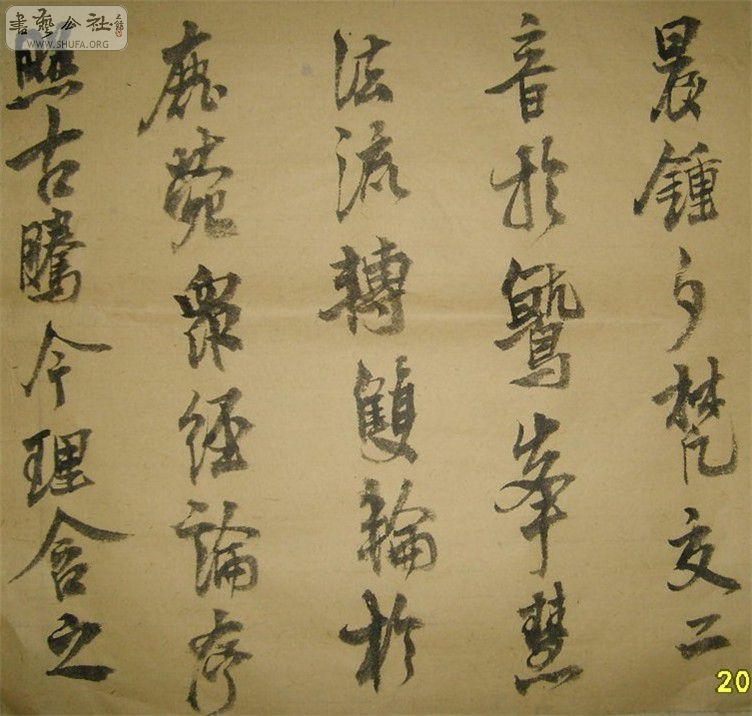 書藝公社
WWW.SHUFA.ORG
晨鍾夕梵交二
音於鷲峯慧
法流轉雙輪於
鹿菀衆經論序
照古騰今理含之
20